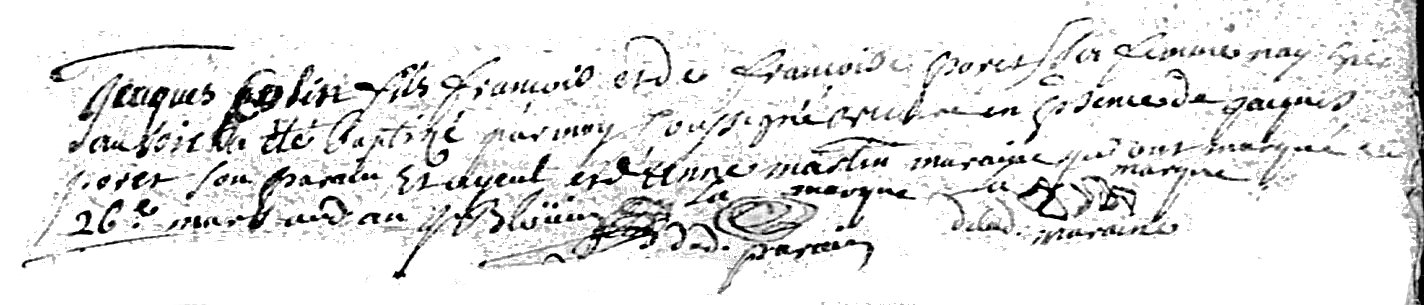 Jacques Colin fils francois et de francoise poret sa femme nay hier
au soir a été baptizé par moy soussigné vicaire en presence de Jacques
poret son parain et ayeul et d'Etienne martin maraine qui ont marqué ce
26e mars aud an J Bloüin la marque marque
dud. parain de lad. maraine